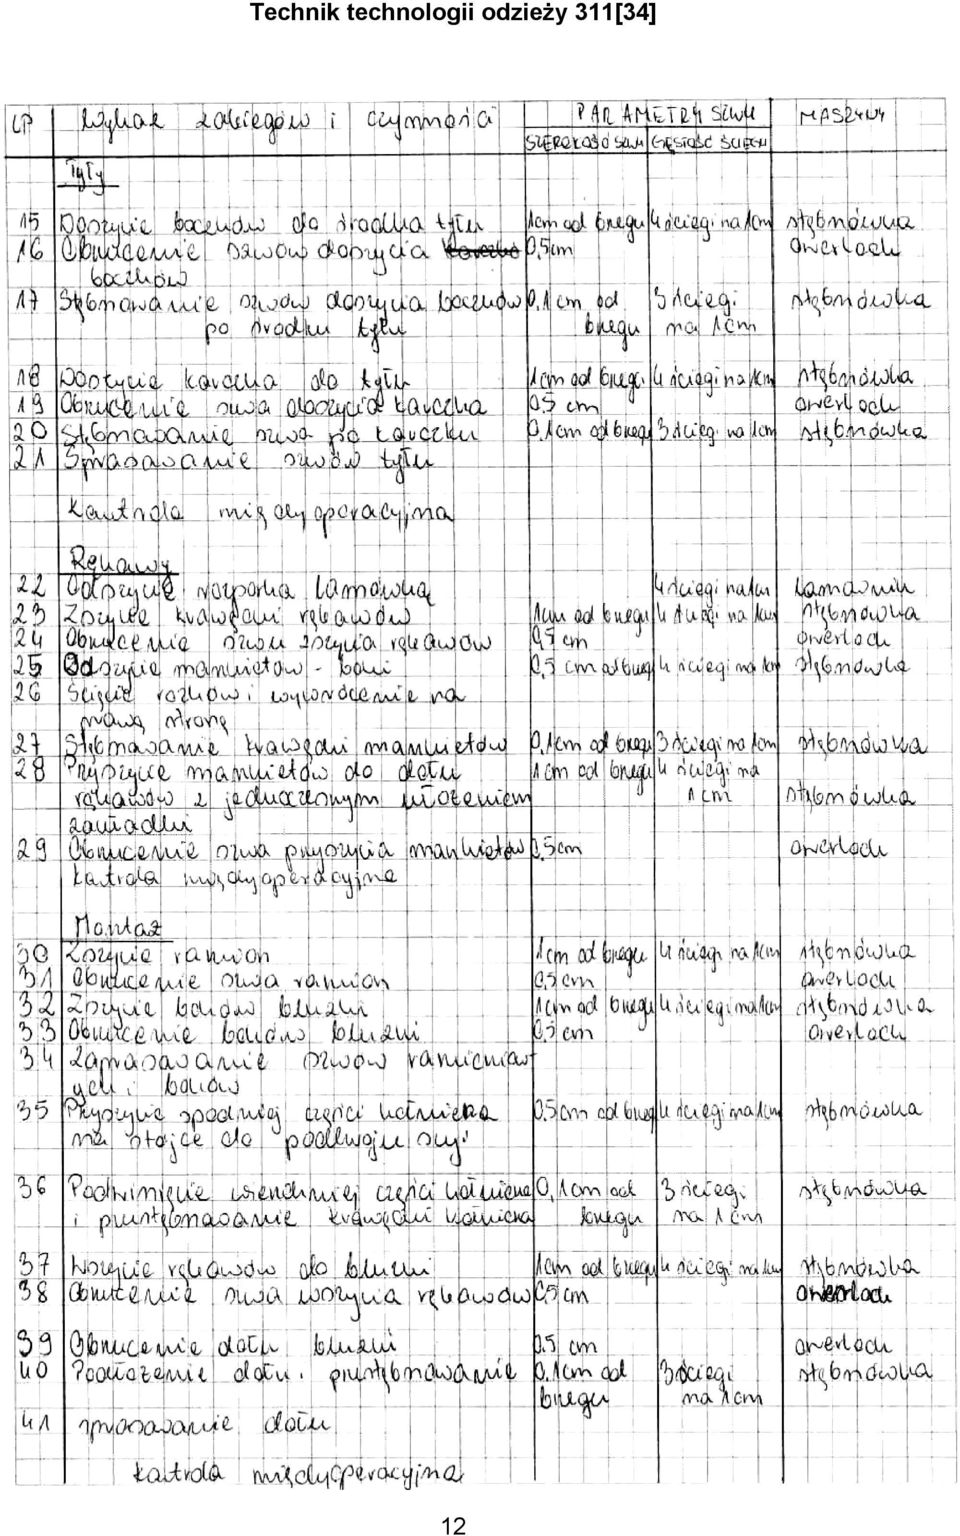 Technik technologii odzieży 311[34]
LP Wykaz zabiegów i czynności PARAMETRY SZWU MASZYNY
SZEROKOŚĆ SZWU GĘSTOŚĆ ŚCIEGU
Tyły
15 Doszycie boczków do środka tyłu 1cm od brzegu 4 ściegi na 1cm stębnówka
16 Obrzucenie szwów doszycia 0,5cm overlock
boczków
17 Stębnowanie szwów doszycia boczków 0,1cm od 3 ściegi stębnówka
po środku tyłu brzegu na 1cm
18 Doszycie karczka do tyłu 1cm od brzegu 4 ściegi na 1cm stębnówka
19 Obrzucenie szwa doszycia karczka 0,5 cm overlock
20 Stębnowanie szwa po karczku 0,1cm od brzegu 3 ściegi na 1cm stębnówka
21 Sprasowanie szwów tyłu
Kontrola międzyoperacyjna
Rękawy
22 Odszycie rozporka lamówką 4 ściegi na 1cm Lamownik
23 Zszycie krawędzi rękawów 1cm od brzegu 4 ściegi na 1cm stębnówka
24 Obrzucenie szwu zszycia rękawów 0,5 cm overlock
25 Odszycie mankietów - boki 0,5 cm od brzegu 4 ściegi na 1cm stębnówka
26 Ścięcie rożków i wywrócenie na
prawą stronę
27 Stębnowanie krawędzi mankietów 0,1cm od brzegu 3 ściegi na 1cm stębnówka
28 Przyszycie mankietów do dołu 1cm od brzegu 4 ściegi na
rękawów z jednoczesnym ułożeniem 1cm stębnówka
zakładki
29 Obrzucenie szwa przyszycia mankietów 0,5cm overlock
Kontrola międzyoperacyjna
Montaż
30 Zszycie ramion 1cm od brzegu 4 ściegi na 1cm stębnówka
31 Obrzucenie szwa ramion 0,5cm overlock
32 Zszycie boków bluzki 1cm od brzegu 4 ściegi na 1cm stębnówka
33 Obrzucenie boków bluzki 0,5 cm overlock
34 Zaprasowanie szwów ramieniow
ych i boków
35 Przyszycie spodniej części kołnierza 0,5cm od brzegu 4 ściegi na 1cm stębnówka
na stójce do podkroju szyi
36 Podwinięcie wierzchniej części kołnierza 0,1cm od 3 ściegi stębnówka
i przestębnowanie krawędzi kołnierza brzegu na 1cm
37 Wszycie rękawów do bluzki 1cm od brzegu 4 ściegi na 1cm stębnówka
38 Obrzucenie szwa wszycia rękawów 0,5cm overlock
39 Obrzucenie dołu bluzki 0,5 cm overlock
40 Podłożenie dołu i przestębnowanie 0,1cm od 3 ściegi stębnówka
brzegu na 1cm
41 sprasowanie dołu
kontrola międzyoperacyjna
12